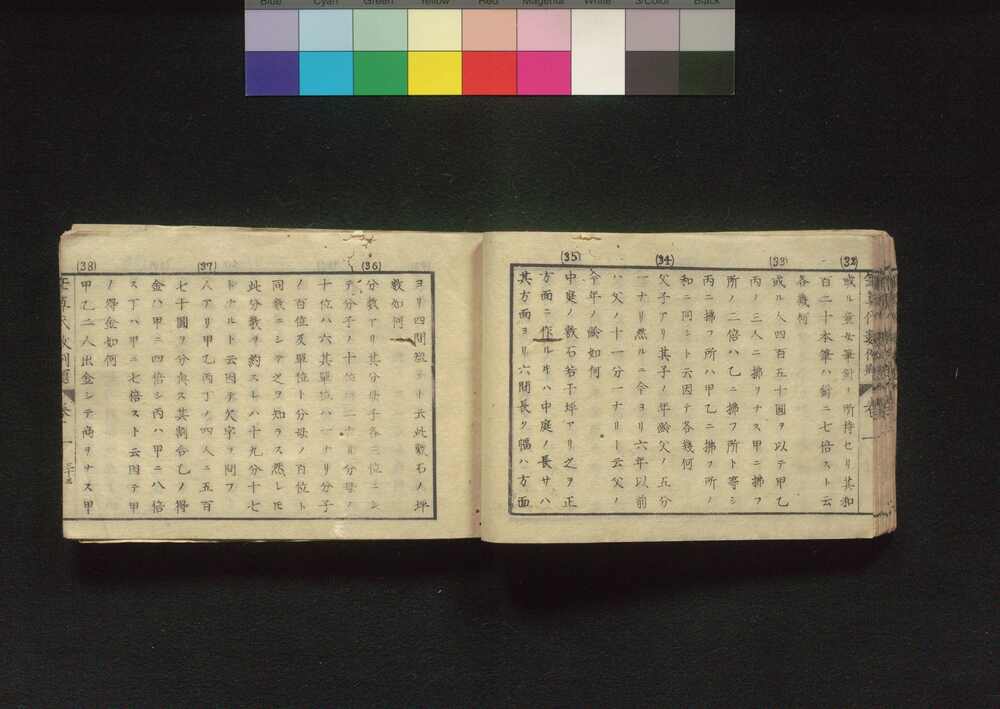 Blue Cyan Green Yellow Red Magenta White 3/Color Black
(32)
或ル童女筆針ヲ所持セリ其和
百二十本筆ハ針ニ七倍スト云
各幾何
(33)
或ル人四百五十圓ヲ以テ甲乙
丙ノ三人ニ拂ヲナス甲ニ拂フ
所ノ二倍ハ乙ニ拂フ所ト等シ
丙ニ拂フ所ハ甲乙ニ拂フ所ノ
和ニ同シト云因テ各幾何
(34)
父子アリ其子ノ年齢父ノ五分
一ナリ然ルニ今ヨリ六年以前
ハ父ノ十一分一ナリト云父ノ
今年ノ齢如何
(35)
中庭ノ敷石若干坪アリ之ヲ正
方面ニ作ルキハ中庭ノ長サハ
其方面ヨリ六間長ク幅ハ方面
ヨリ四間短シト云此敷石ノ坪
數如何
(36)
分數アリ其分母子各三位ニシ
テ分子ノ十位ハ二ナリ分母ノ
十位ハ六其單位ハ一ナリ分子
ノ百位及單位ト分母ノ百位ト
同數ニシテ之ヲ知ラス然レ𪜈
此分數ヲ約スレハ十九分十七
トナルト云因テ欠字ヲ問フ
(37)
人アリ甲乙丙丁ノ四人ニ五百
七十圓ヲ分與ス其割合乙ノ得
金ハ甲ニ四倍シ丙ハ甲ニ八倍
ス丁ハ甲ニ七倍スト云因テ甲
ノ得金如何
(38)
甲乙二人出金シテ商ヲナス甲